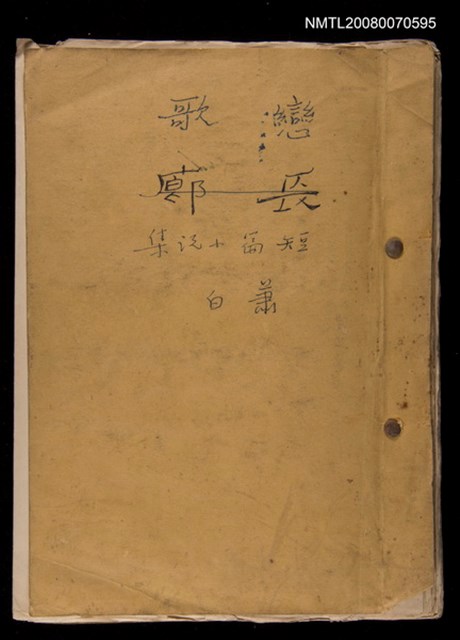 NMTL20080070595
戀歌
長廊
短篇小說集
蕭白